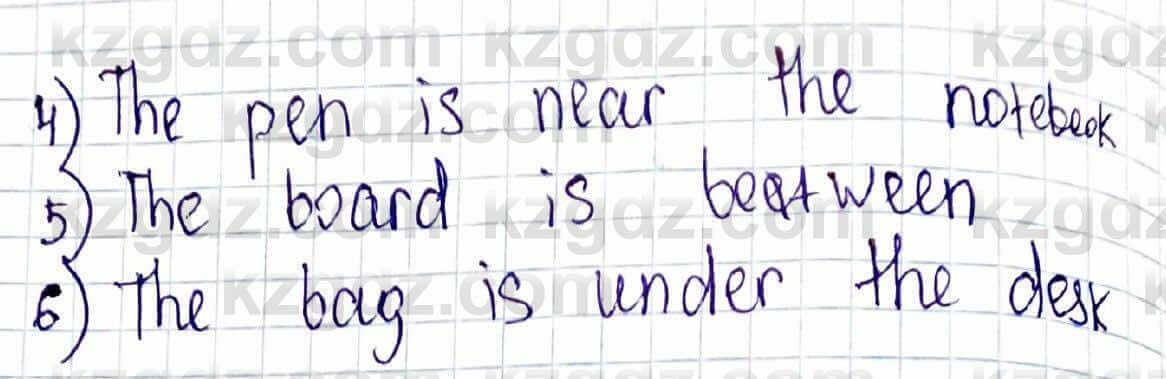 kzgdz.com kzgdz.com kzgdz
4) The pen is near the notebook
5) The board is beatween
6) The bag is under the desk